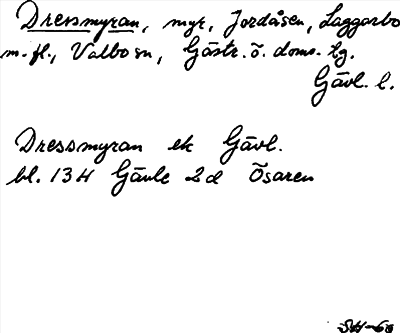 Dressmyran, myr, Jordåsen, Laggarbo
m.fl., Valbo sn, Gästr. ö. doms. hg.
Gävl. l.
Dressmyran ek Gävl.
bl. 13H Gävle 2d Ösaren